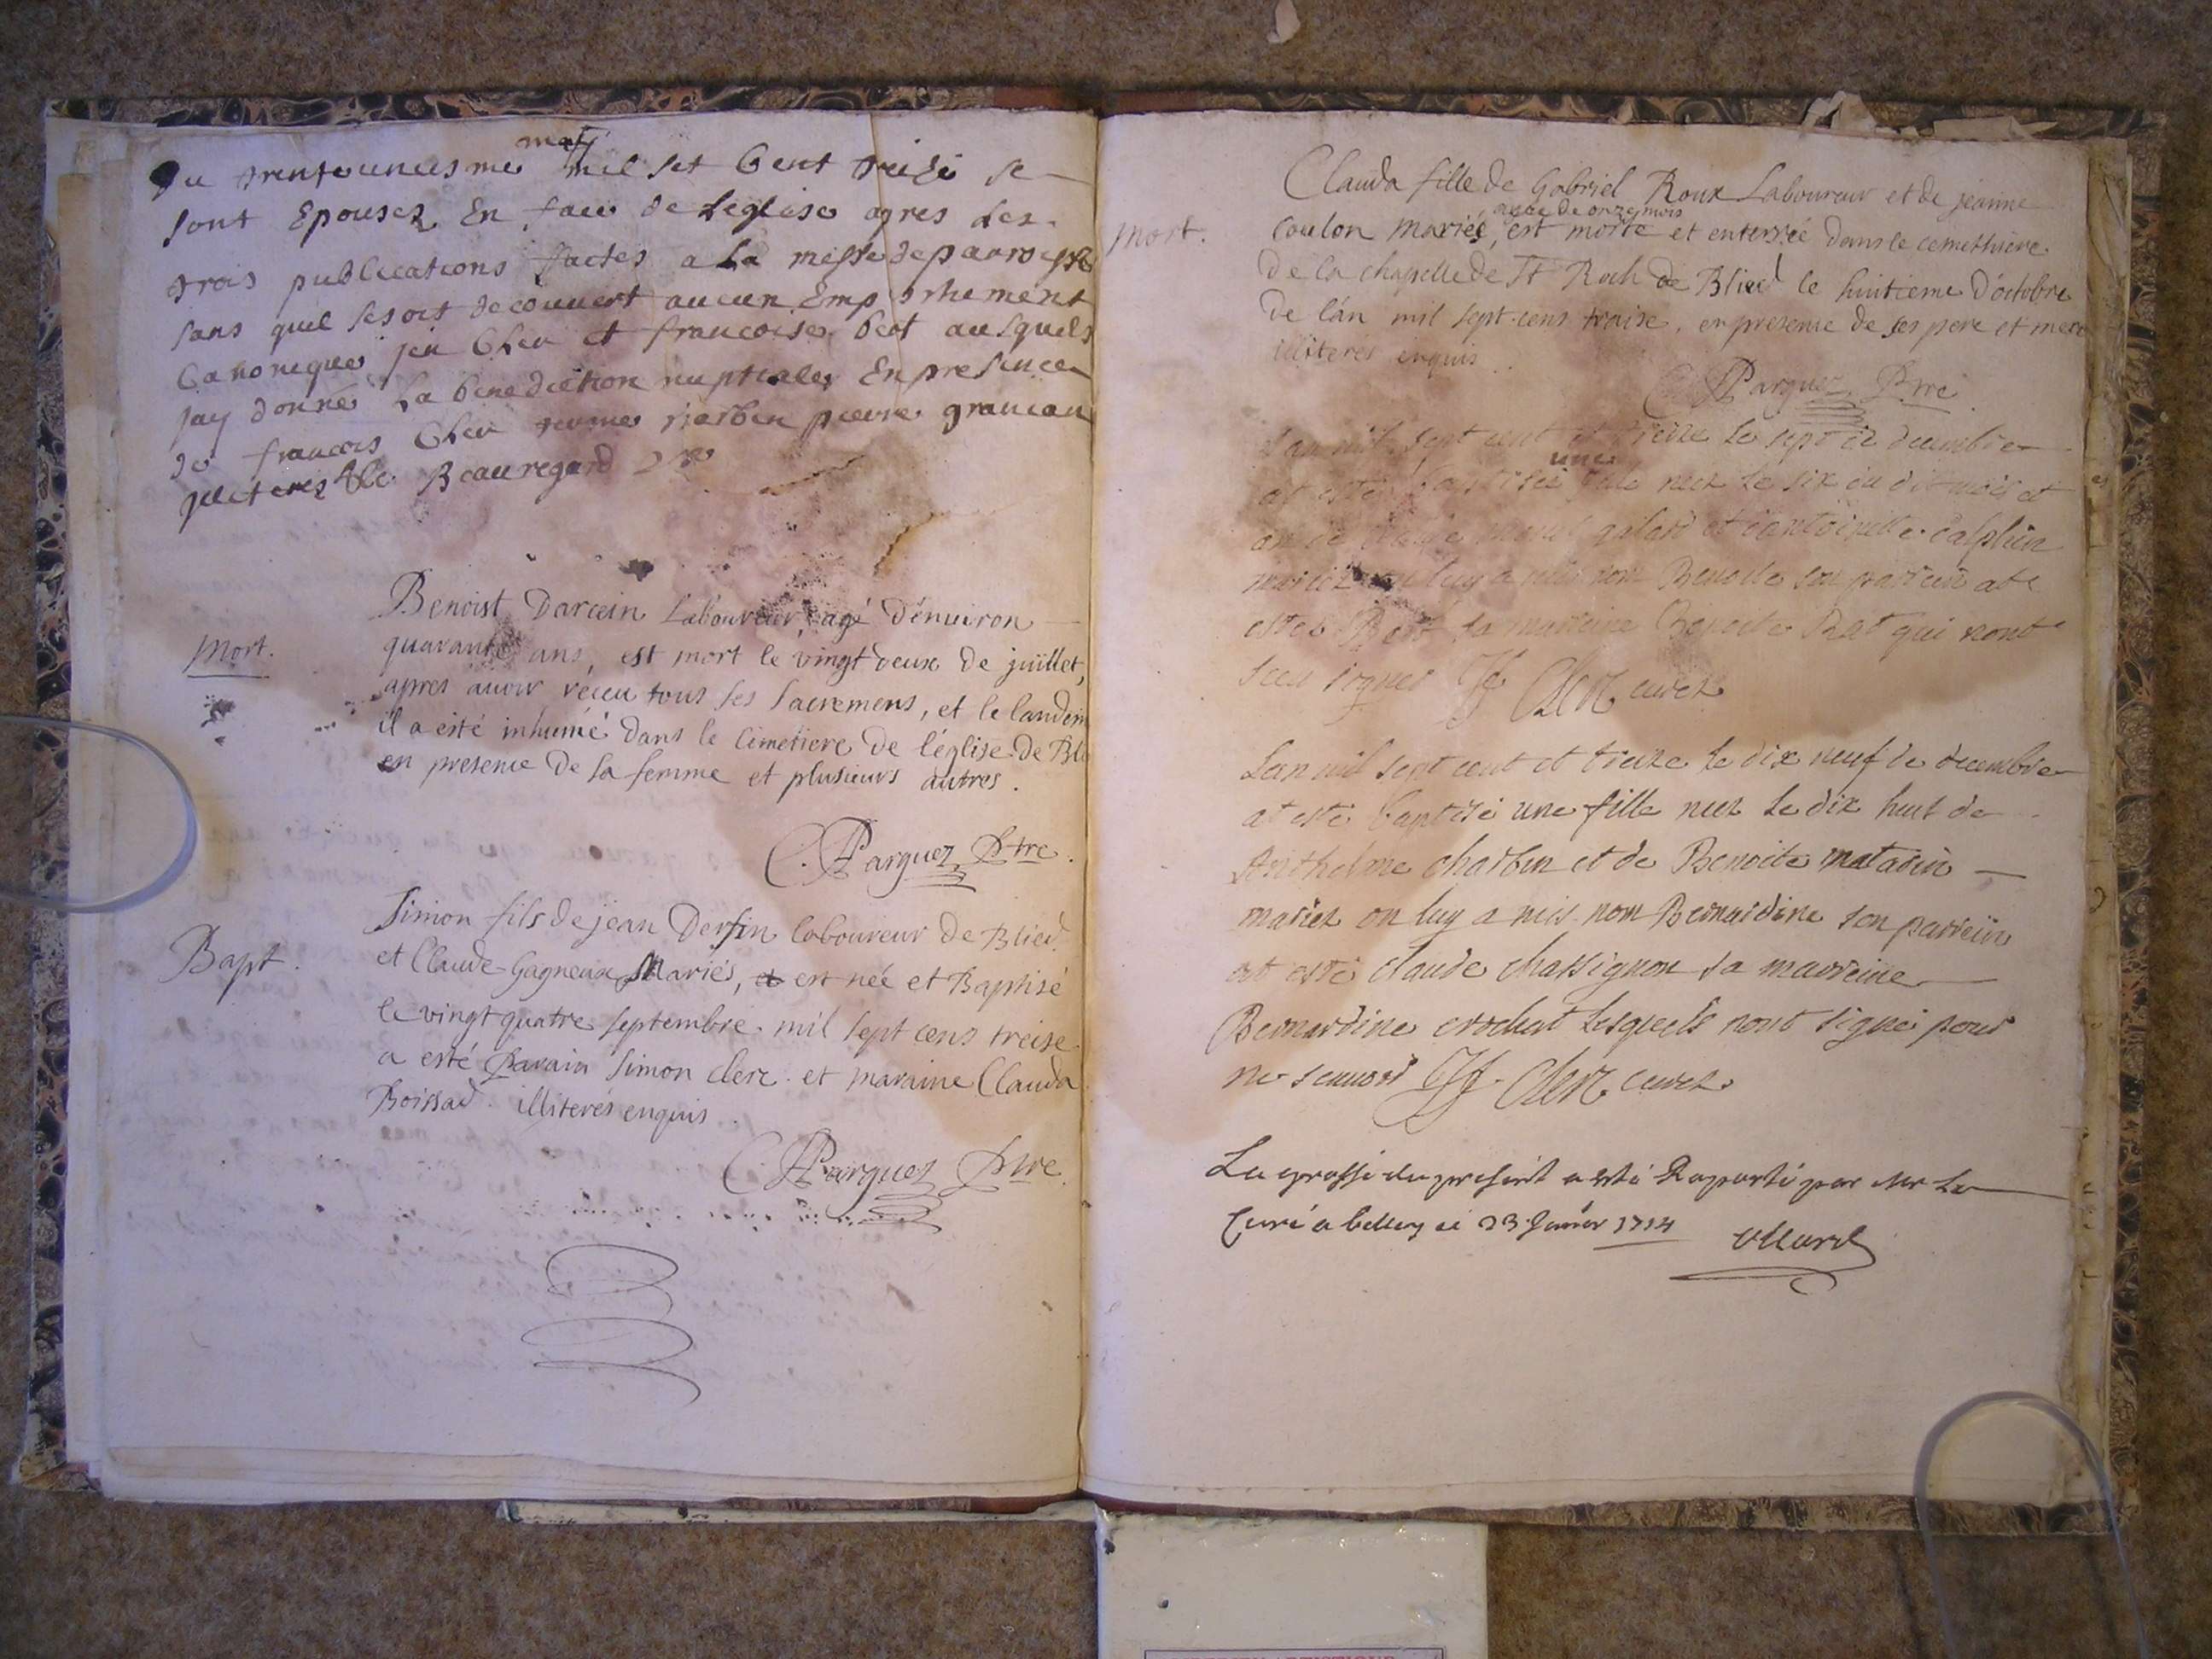 Du trente uniesme may mil set Cent treize se
sont Epousez En face de Leglise apres les
trois publications faites a La messe de parroisse
sans quil se soit decouvert aucun Empeschement
Canonique jen Cler et francoise beot ausquels
jay donné La benediction nuptiale En presence
de francois Cler
Beauregard
Mort.
Benoist Darcein Laboureur, agé d'enuiron
quarante ans, est mort le vingt deux de juillet,
apres auoir réceu tous ses Sacremens, et le landem
il a esté inhumé dans le Cimetiere de l'église de Bli
en presence de sa femme et plusieurs autres.
C. Parguez Ptre.
Bapt.
Simon fils de jean Derfin laboureur de Blied
et Claude Gagneux Mariés, et est née et Baptisé
le vingt quatre septembre mil sept cens treise
a esté Parain Simon clerc et maraine Clauda
Boissad. illiterés enquis.
C. Parguez Ptre.
Mort.
Clauda fille de Gabriel Roux Laboureur et de jeanne
Coulon Mariés, agée de onze mois est morte et enterrée dans le cemethiere
de la chapelle de St Roch de Blied le huitieme d'octobre
de l'an mil sept cens traise, en presence de ses pere et mere
illiterés enquis.
C. Parguez Ptre.
Lan mil sept cent et treize le sept de decembre
at esté baptisée une fille neez le six du dit mois et
an de galard et dantoinette dalphin
mariez on luy a mis nom Benoite son parrein at
esté sa marreine Benoite Bat qui nont
sceu signer Clerc curez
Lan mil sept cent et treize le dix neuf de decembre
at esté baptisé une fille neez le dix huit de
Anthelme charbin et de Benoite matadin
mariez on luy a mis nom Bernardine son parrein
at esté claude chassignon sa marreine
Bernardine crochat lesquels nont signé pour
ne scauoir Clerc curez
La grosse du present a esté Raporté par Mr Le
Curé a belley ce 23 Janvier 1714